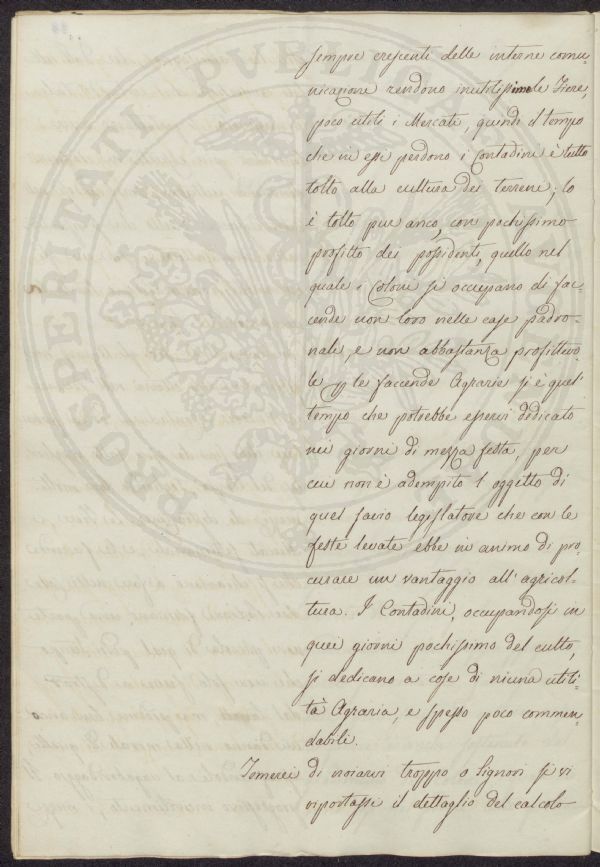 sempre crescenti delle interne comu-
nicazione rendono inutilissime le Fiere,
poco utili i Mercati, quindi il tempo
che in essi perdono i Contadini è tutto
tolto alla cultura dei terreni; lo
è tolto pur anco, con pochissimo
profitto dei possidenti, quello nel
quale i Coloni si occupano di fac-
cende non loro nelle case padro-
nali, e non abbastanza profittevo-
le p le faccende Agrarie si è quel
tempo che potrebbe esservi dedicato
nei giorni di mezza festa, per
cui non è adempito l'oggetto di
quel savio legislatore che con le
feste levate ebbe in animo di pro-
curare un vantaggio all'agricol-
tura. I Contadini, occupandosi in
quei giorni pochissimo del culto,
si dedicano a cose di niuna utili-
tà Agraria, e spesso poco commen-
dabili.
Temerei di noiarvi troppo o Signori se vi
riportassi il dettaglio del calcolo
PROSPERITATI PUBLICAE